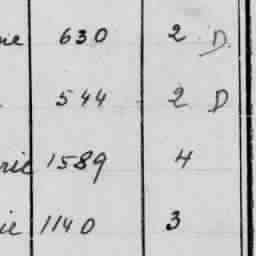 ne 630 2 D.
544 2 D
ric 1589 4
ie 1140 3